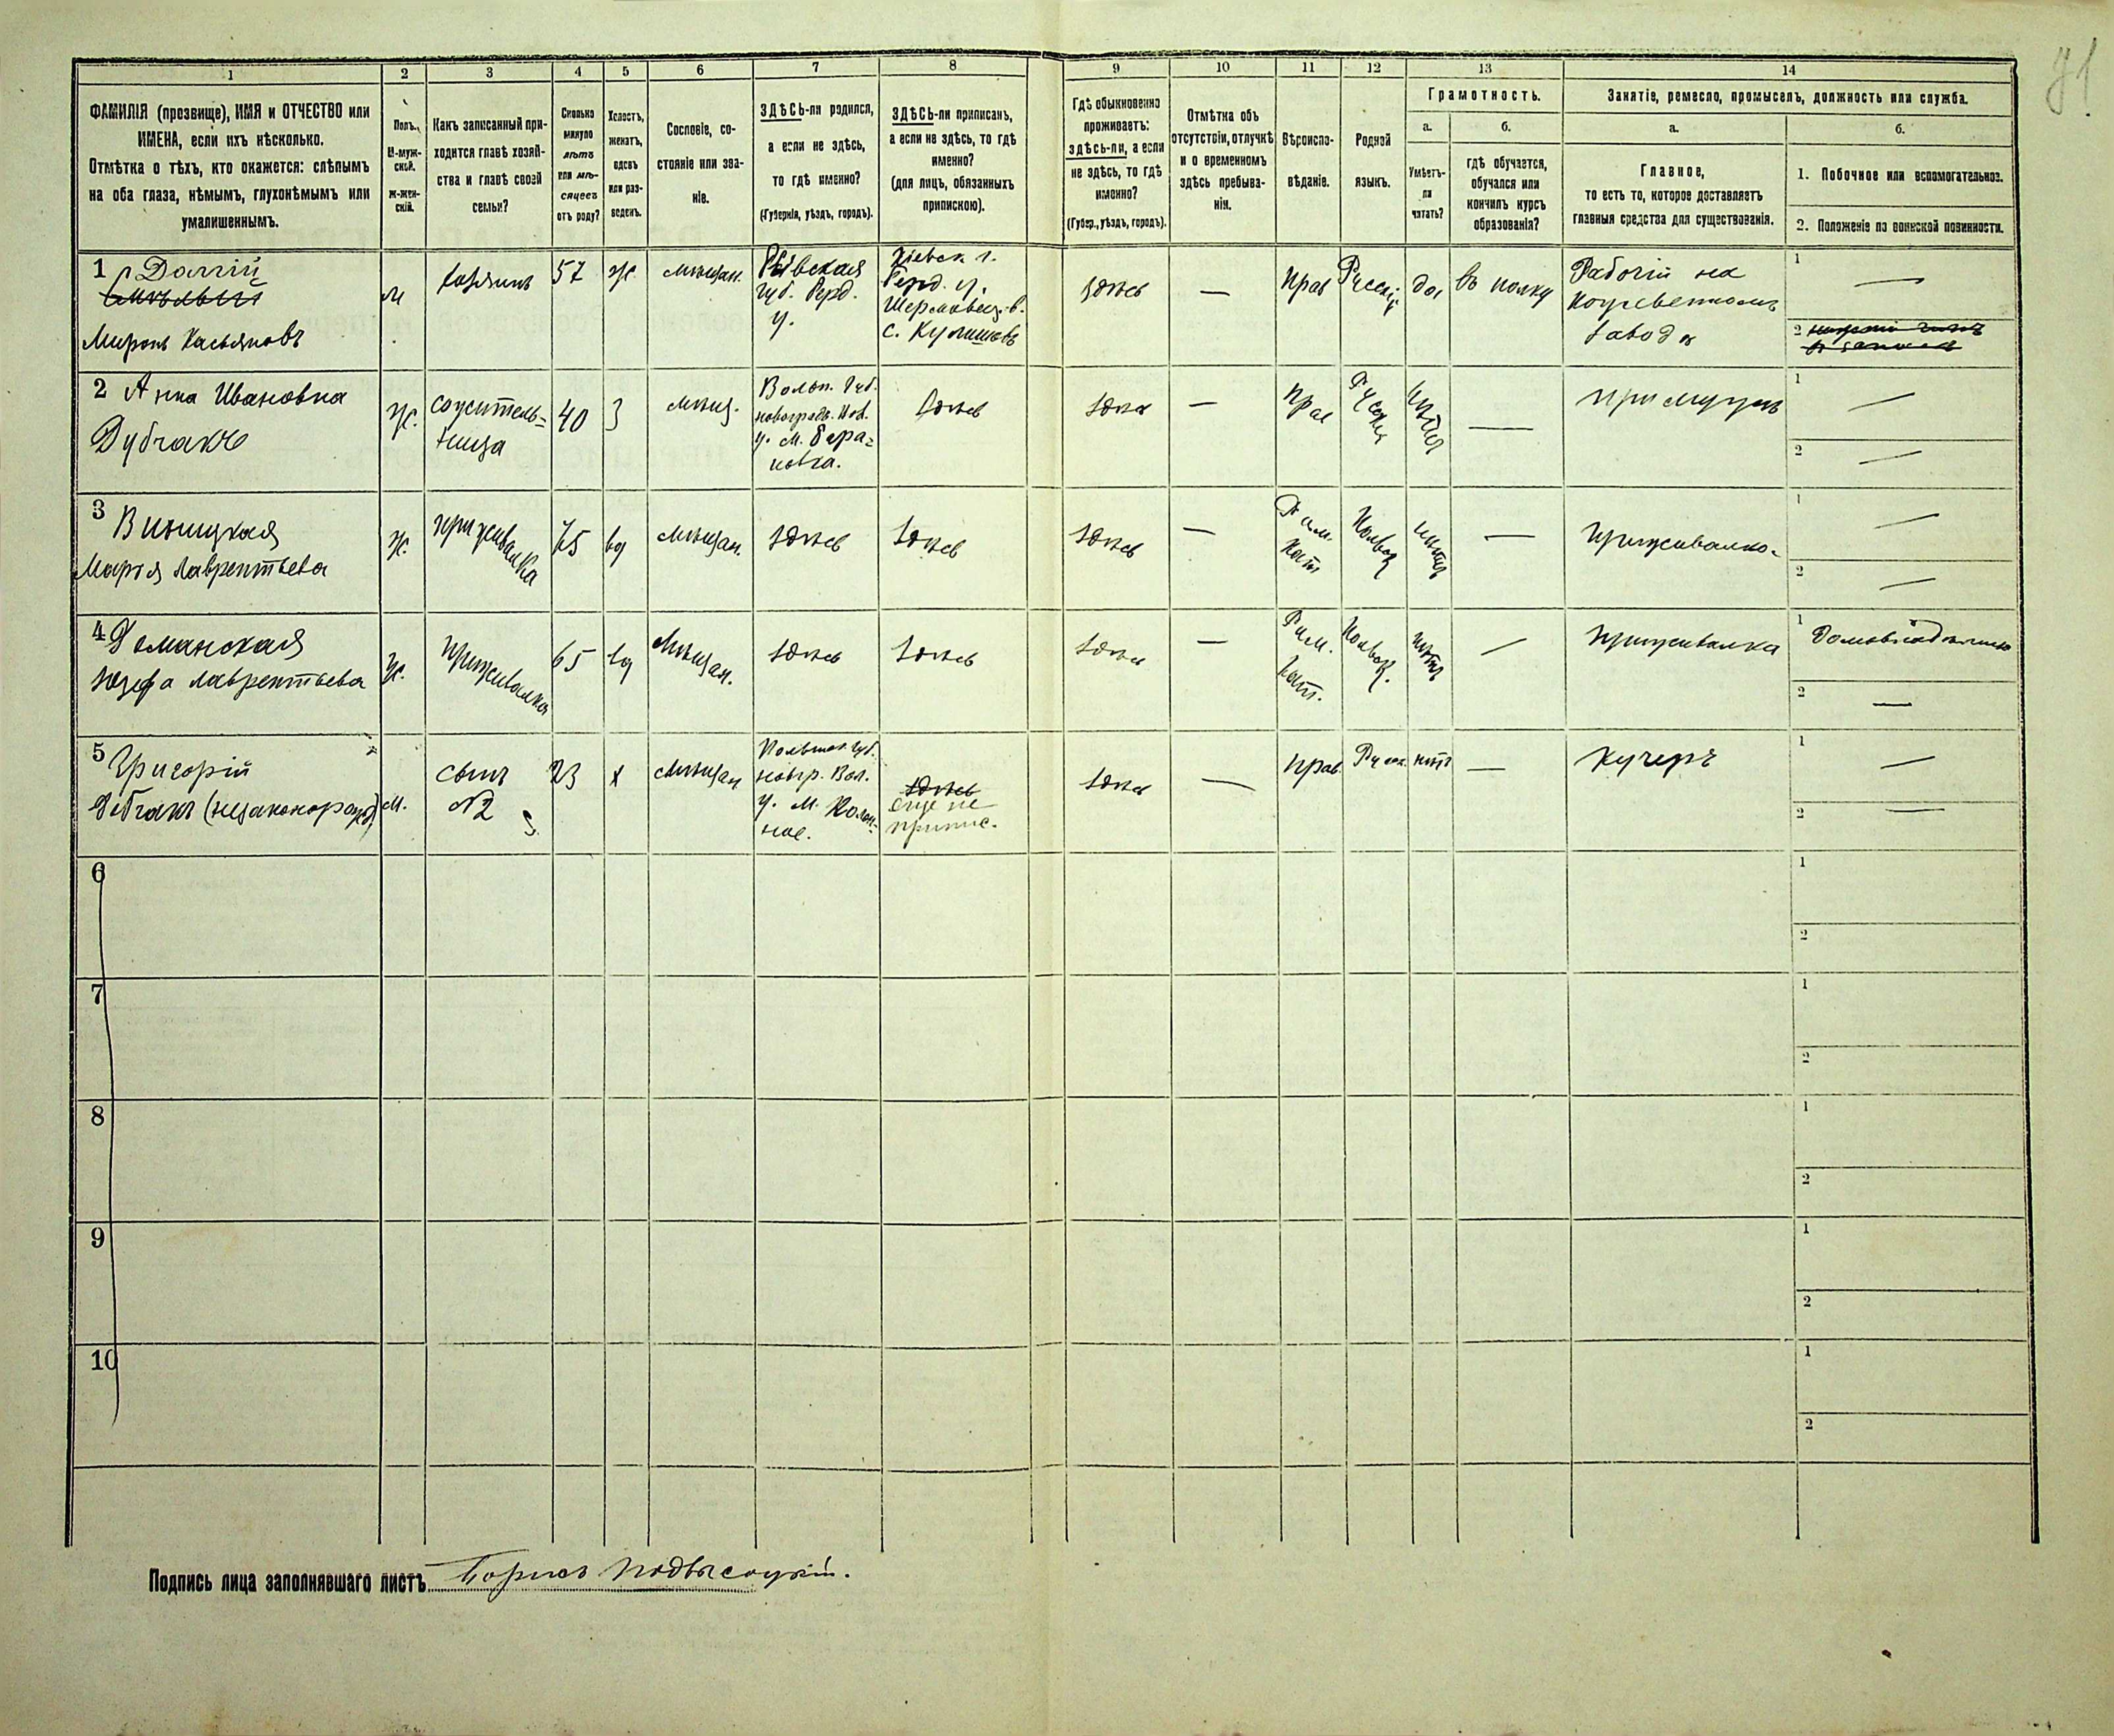 71
1
2
3
4
5
6
7
8
9
10
11
12
13
14
ФАМИЛІЯ (прозвище), ИМЯ и ОТЧЕСТВО или
ИМЕНА, если ихъ нѣсколько.
Отмѣтка о тѣхъ, кто окажется: слѣпымъ
на оба глаза, нѣмымъ, глухонѣмымъ или
умалишеннымъ.
Полъ.
М-муж-
ской.
Ж-жен-
скій.
Какъ записанный при-
ходится главѣ хозяй-
ства и главѣ своей
семьи?
Сколько
минуло
лѣтъ
или мѣ-
сяцевъ
отъ роду?
Холостъ,
женатъ,
вдовъ
или раз-
веденъ.
Сословіе, со-
стояніе или зва-
ніе.
ЗДѢСЬ-ли родился,
а если не здѣсь,
то гдѣ именно?
(Губернія, уѣздъ, городъ).
ЗДѢСЬ-ли приписанъ,
а если не здѣсь, то гдѣ
именно?
(для лицъ, обязанныхъ
припискою).
Гдѣ обыкновенно
проживаетъ:
здѣсь-ли, а если
не здѣсь, то гдѣ
именно?
(Губер., уѣздъ, городъ).
Отмѣтка объ
отсутствіи, отлучкѣ
и о временномъ
здѣсь пребыва-
ніи.
Вѣроиспо-
вѣданіе.
Родной
языкъ.
Грамотность.
а.
Умѣетъ-
ли
читать?
б.
гдѣ обучается,
обучался или
кончилъ курсъ
образованія?
Занятіе, ремесло, промыселъ, должность или служба.
а.
Главное,
то есть то, которое доставляетъ
главныя средства для существованія.
б.
1. Побочное или вспомогательное.
2. Положеніе по воинской повинности.
1 Долгій
Миронъ Касьяновъ
м
хозяинъ
57
ж.
мѣщан.
Кіевская
губ. Берд.
у.
Кіевск. г.
Берд. у.
с.
здѣсь
—
прав
Русскій
да
въ полку
Рабочій на
заводѣ
1 —
2
2 Анна Ивановна
Дубчакъ
ж.
сожитель=
ница
40
З
мѣщ.
Волын. губ.
новоградъ. Вол.
у. м. Бара=
новка.
здѣсь
здѣсь
—
прав
Русскій
нѣтъ
—
при мужѣ
1 —
2 —
3 Виницкая
Марья Лаврентьева
ж.
приживалка
75
вд
мѣщан.
здѣсь
здѣсь
здѣсь
—
Рим.
Кат.
Польск
нѣтъ
—
приживалка
1 —
2 —
4 Романская
Юзефа Лаврентьева
ж.
приживалка
65
вд
Мѣщан.
здѣсь
здѣсь
здѣсь
—
Рим.
Кат.
Польск.
нѣтъ
—
приживалка
1
2 —
5 Григорій
Дубчакъ (незаконорожд)
м.
сынъ
№2
23
х
мѣщан
Волынск. губ.
новгр. Вол.
у. м. Полон=
ное.
здѣсь
еще не
припис.
здѣсь
—
прав.
Русск.
нѣтъ
—
Кучеръ
1 —
2 —
6
1
2
7
1
2
8
1
2
9
1
2
10
1
2
Подпись лица заполнявшаго листъ Борисъ Подвысоцкій.